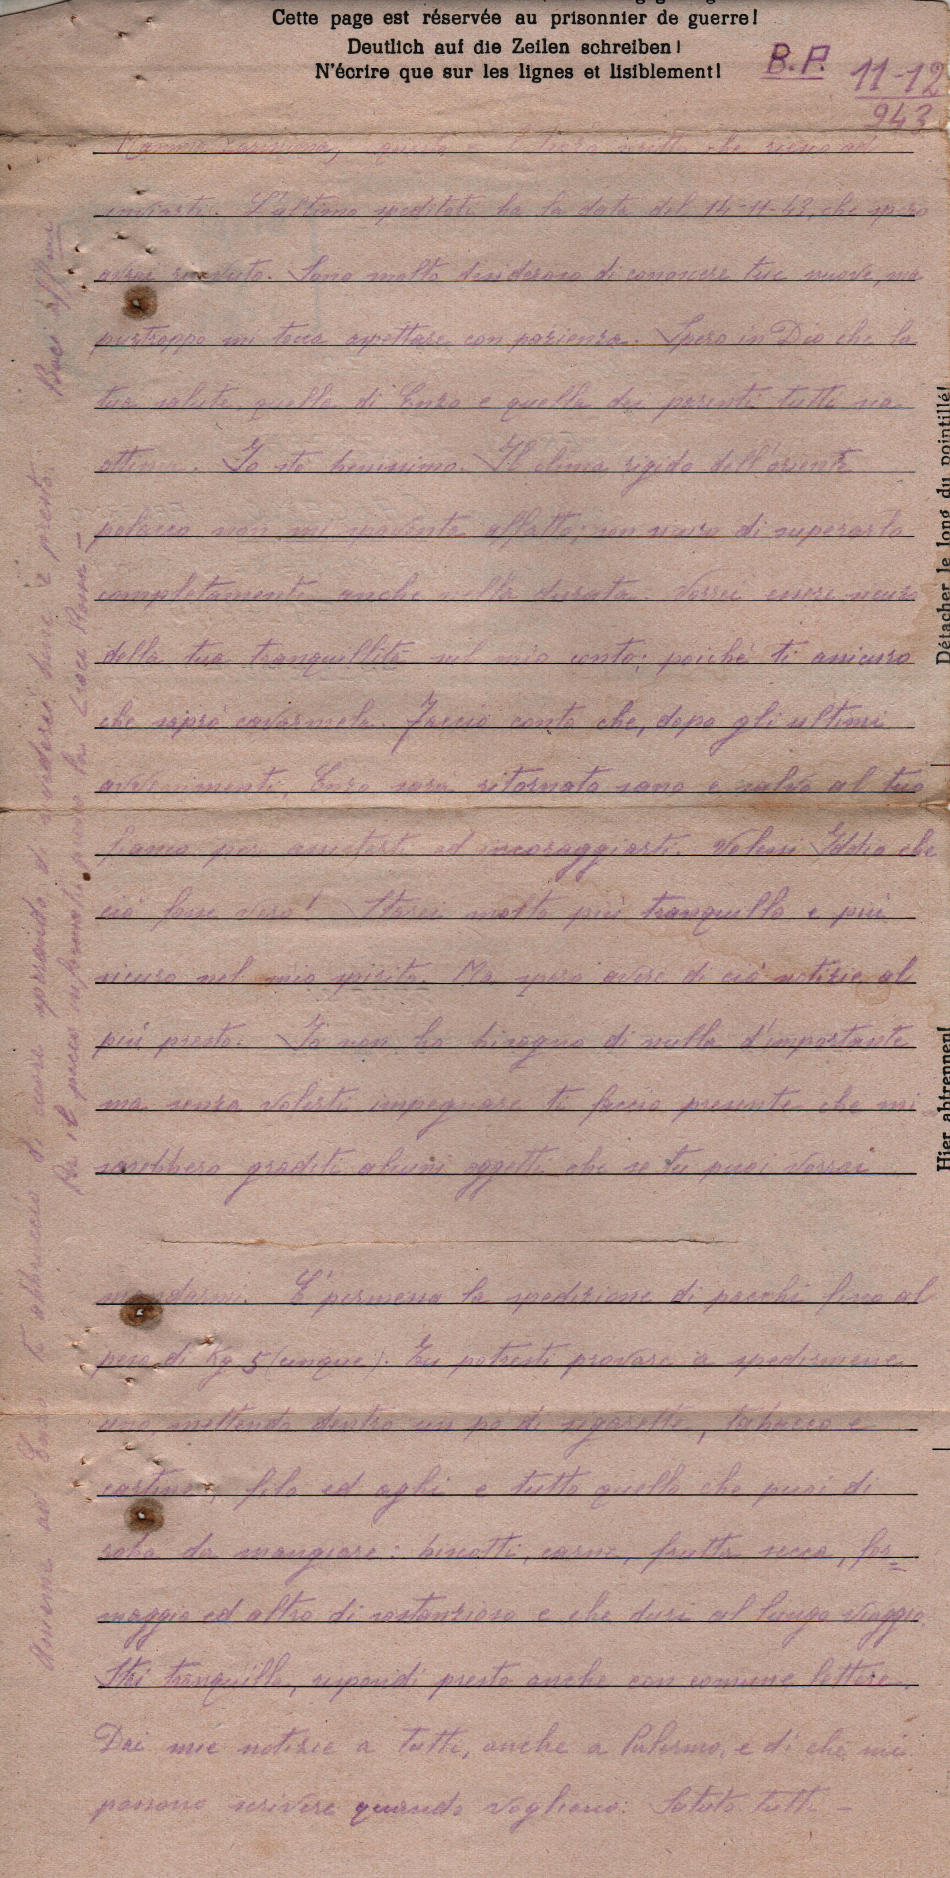 Cette page est réservée au prisonnier de guerre!
Deutlich auf die Zeilen schreiben!
N'écrire que sur les lignes et lisiblement!
B.P.
11-12
943
Mamma carissima, questa è scritto che riesco ad
inviarti. L'ultima speditati ha la data del 14-11-43, che spero
avrai ricevuto. Sono molto desideroso di conoscere tue nuove, ma
purtroppo mi tocca aspettare con pazienza. Spero in Dio che la
tua salute quella di Enzo e quella dei parenti tutti sia
ottima. Io sto benissimo. Il clima rigido dell'oriente
polacco non mi spaventa affatto; son sicuro di superarlo
completamente anche nella durata. Vorrei essere sicuro
della tua tranquillità sul mio conto; poiché ti assicuro
che saprò cavarmela. Faccio conto che, dopo gli ultimi
avvenimenti, Enzo sarà ritornato sano e salvo al tuo
fianco per assisterti ed incoraggiarti. Volesse Iddio che
ciò fosse vero! Starei molto più tranquillo e più
sicuro nel mio spirito. Ma spero avere di ciò notizie al
più presto. Io non ho bisogno di nulla d'importante
ma senza volerti impegnare ti faccio presente che mi
sarebbero graditi alcuni oggetti che se tu puoi vorrai
mandarmi. E' permessa la spedizione di pacchi fino al
peso di Kg 5 (cinque). Tu potresti provare a spedirmene
uno mettendo dentro un pò di sigarette, tabacco e
cartine, filo ed aghi e tutto quello che puoi di
roba da mangiare: biscotti, carne, frutta secca, for=
maggio ed altro di sostanzioso e che duri al lungo viaggio
Stai tranquilla, rispondi presto anche con comune lettera.
Dai mie notizie a tutti, anche a Palermo, e di che mi
possono scrivere quando vogliono. Saluto tutti —
Assieme ad Enzo ti abbraccio di cuore sperando di vederci bene e presto. Baci
Per il pacco informati presso la Croce Rossa —
Détacher le long du pointillé!
Hier abtrennen!